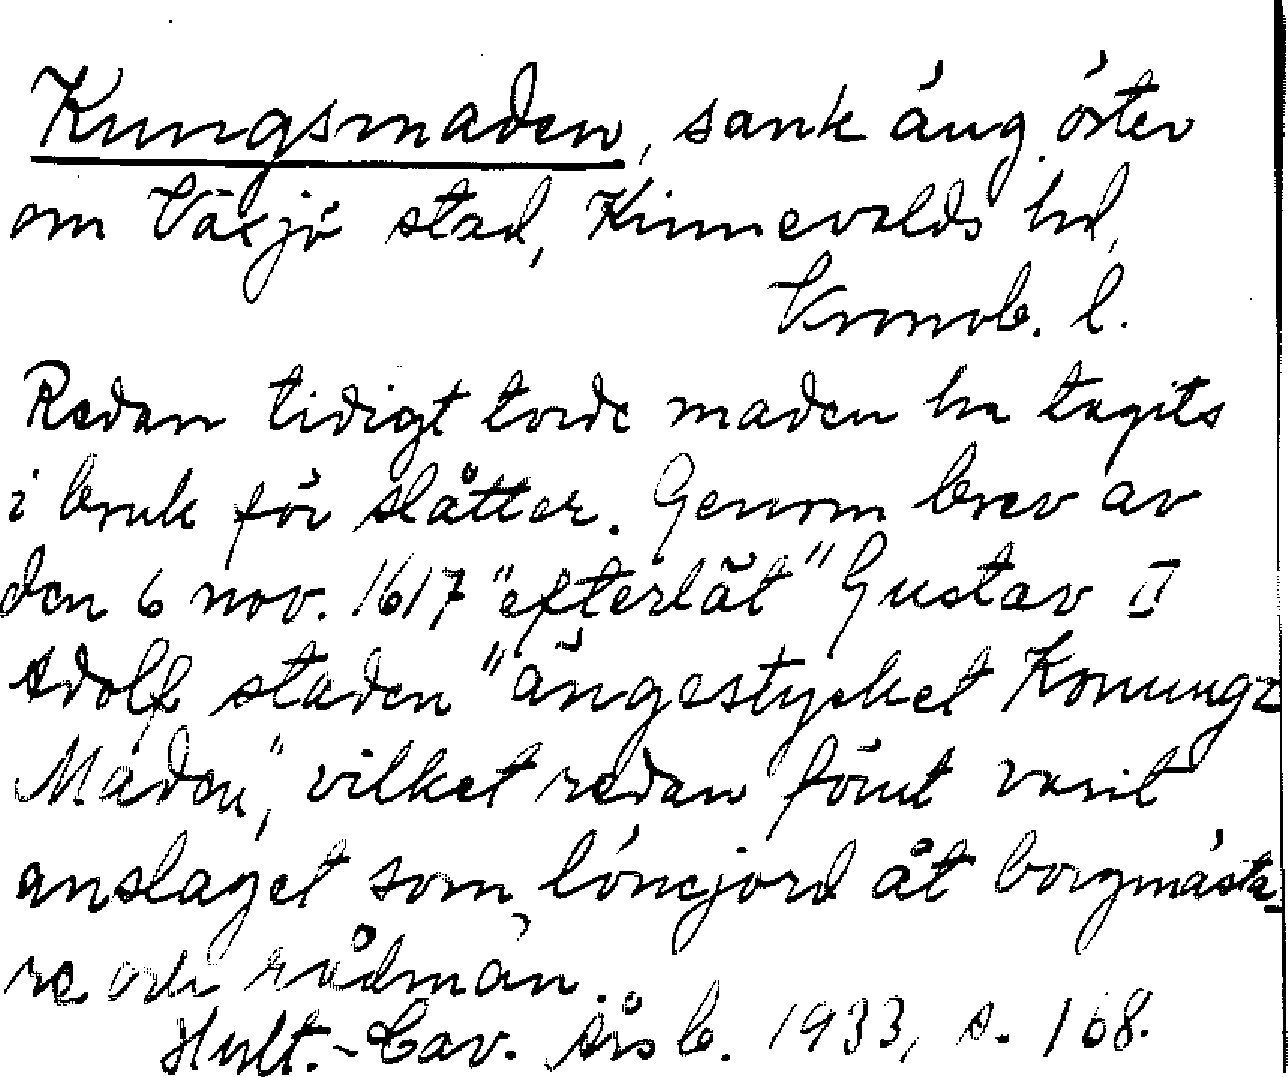 Kungsmaden, sank äng öster
om Växjö stad, Kinnevalds hd,
Kronob. l.
Redan tidigt torde maden ha tagits
i bruk för slåtter. Genom brev av
den 6 nov. 1617 "efterlät" Gustav II
Adolf staden "ängestycket Konungz
Maden", vilket redan förut varit
anslaget som lönejord åt borgmästa-
re och rådmän.
Hylt.-Cav. Årsb. 1933, s. 168.